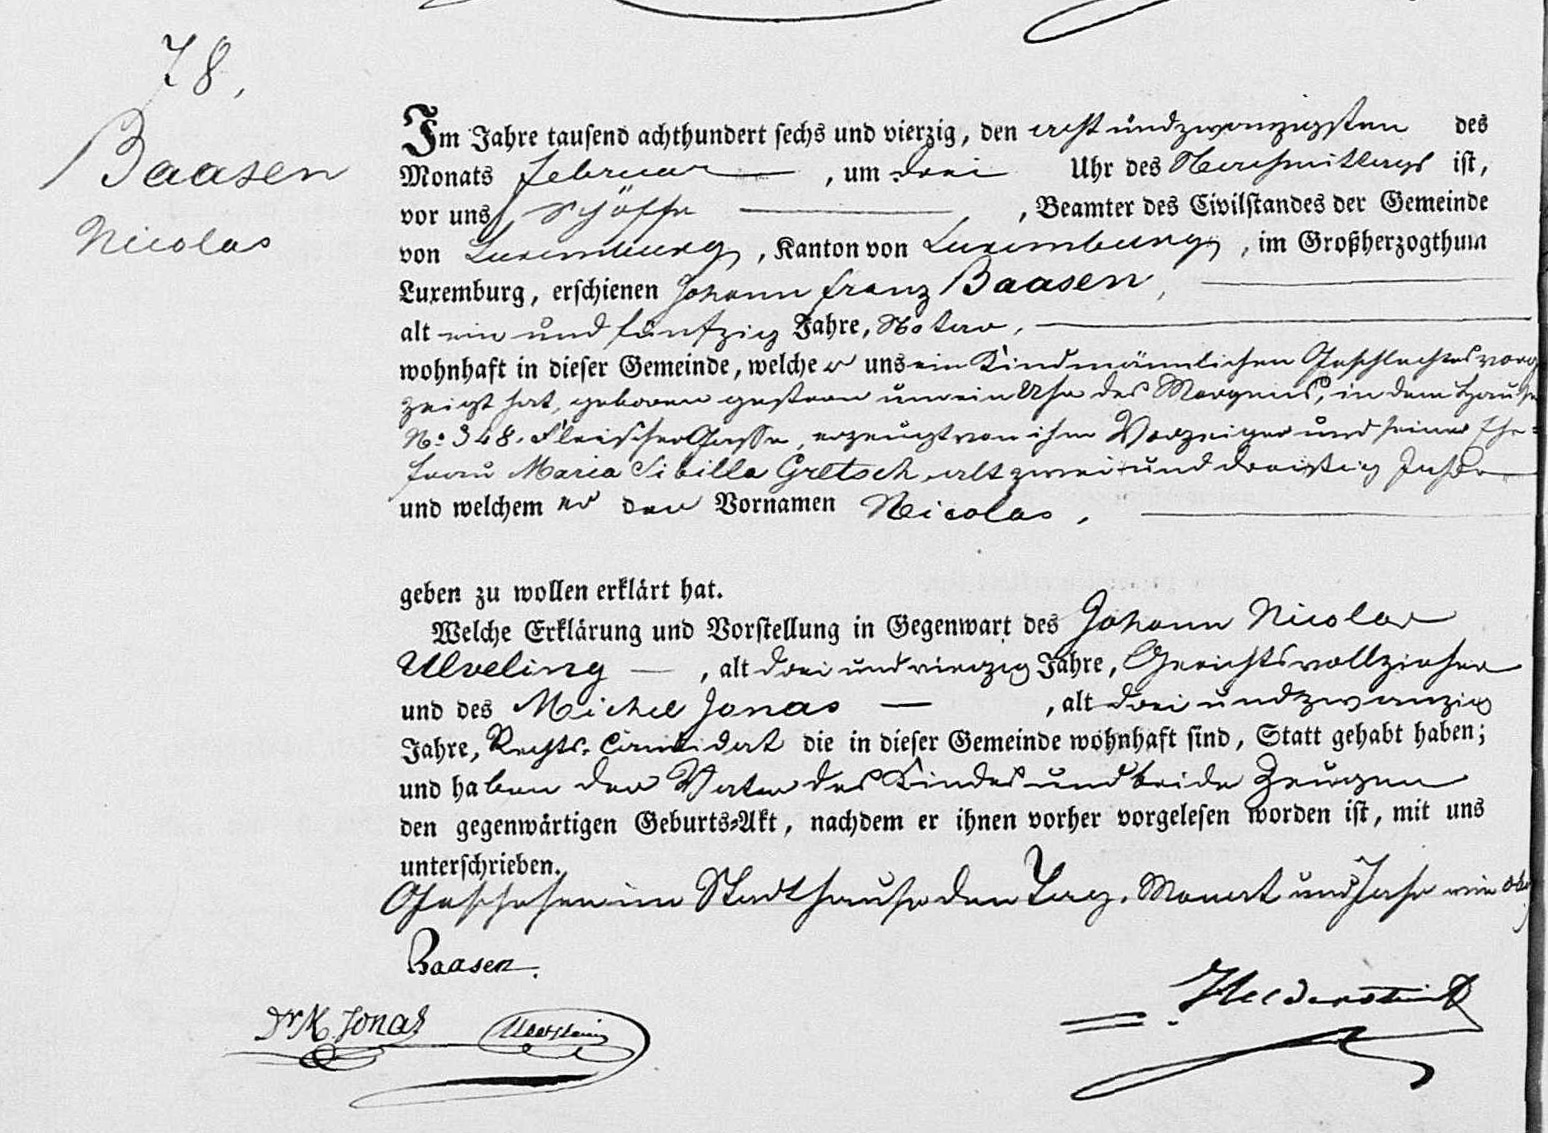 78.
Baasen
Nicolas
Im Jahre tausend achthundert sechs und vierzig, den acht und zwanzigsten des
Monats Februar, um drei Uhr des Nachmittags ist,
vor uns, Schöffe, Beamter des Civilstandes der Gemeinde
von Luxemburg, Kanton von Luxemburg, im Großherzogthum
Luxemburg, erschienen Johann Franz Baasen,
alt ein und fünfzig Jahre, Notar,
wohnhaft in dieser Gemeinde, welcher uns ein Kind männlichen Geschlechtes vorge
zeigt hat, geboren gestern um ein Uhr des Morgens, in dem Hause
No 348. Fleischer Gasse, erzeugt von ihm Vorzeiger und seiner Ehe=
frau Maria Sibilla Gretsch, alt zwei und dreißig Jahre
und welchem er den Vornamen Nicolas,
geben zu wollen erklärt hat.
Welche Erklärung und Vorstellung in Gegenwart des Johann Nicolas
Ulveling, alt drei und vierzig Jahre, Gerichtsvollzieher
und des Michel Jonas, alt drei und zwanzig
Jahre, Rechts-Candidat die in dieser Gemeinde wohnhaft sind, Statt gehabt haben;
und haben der Vater des Kindes und beide Zeugen
den gegenwärtigen Geburts-Akt, nachdem er ihnen vorher vorgelesen worden ist, mit uns
unterschrieben.
Geschehen im Stadthause den Tag, Monat und Jahr wie ob
Baasen.
Dr M. Jonas